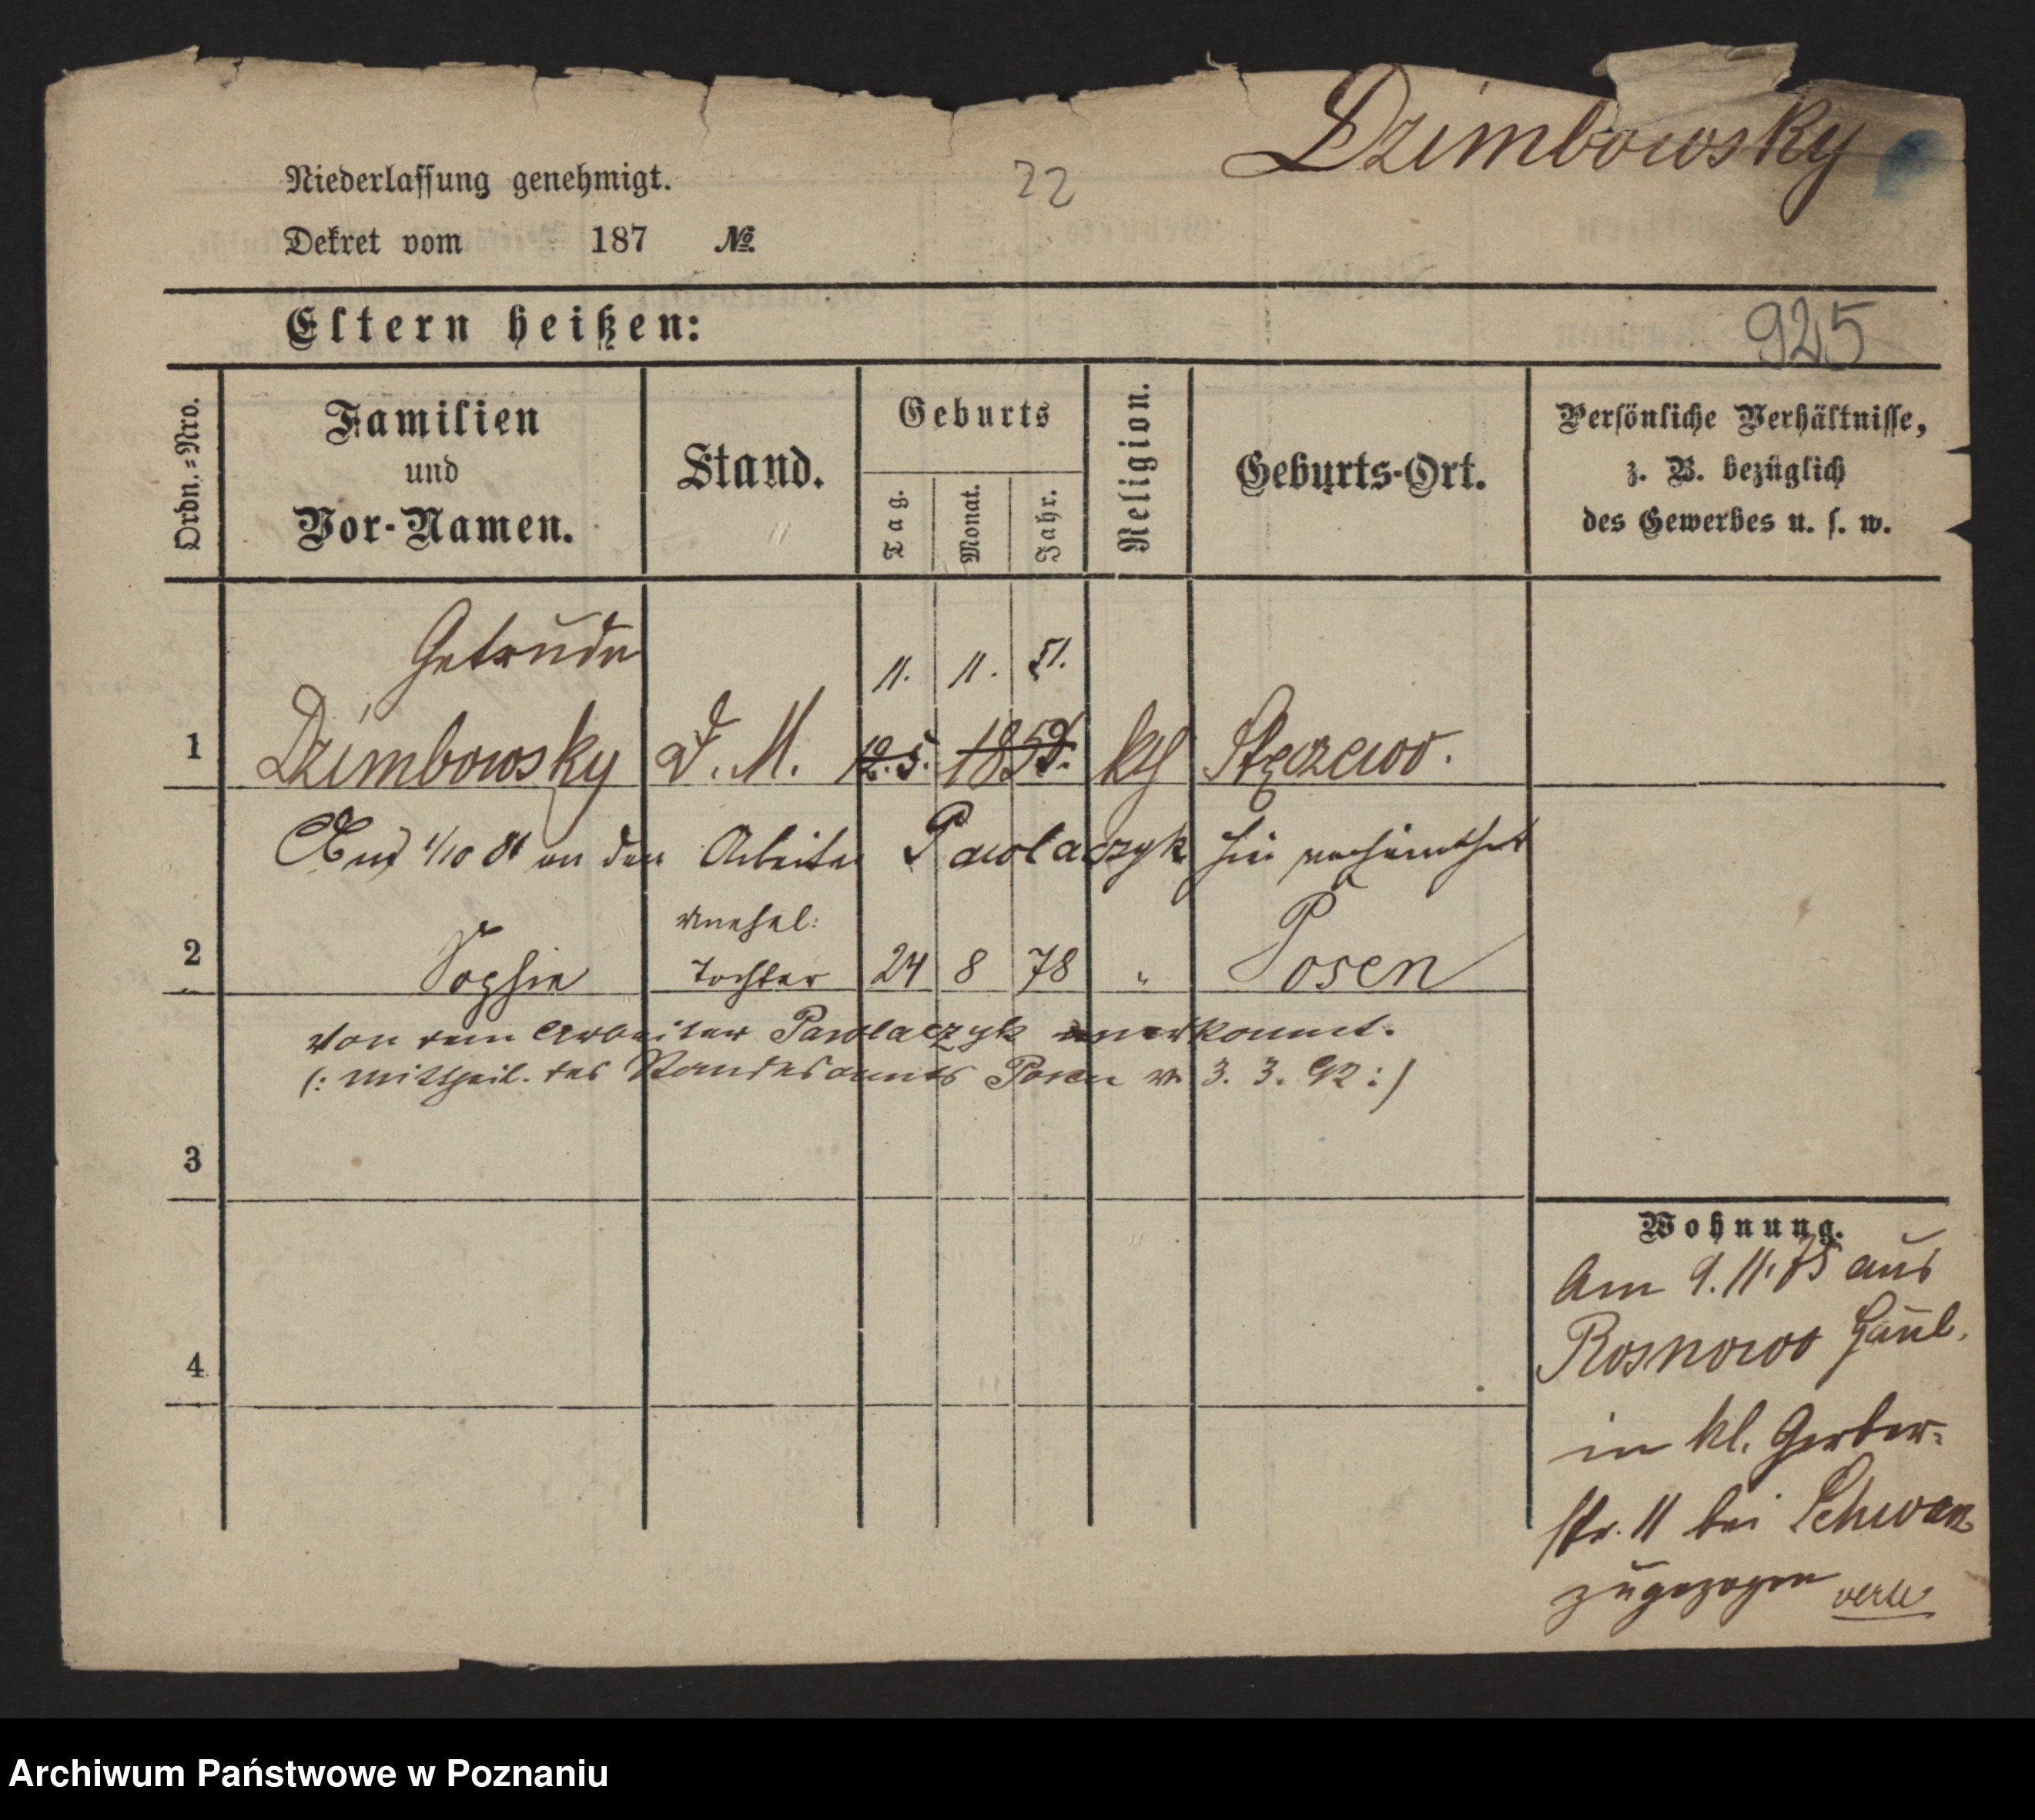 Dzimbowsky
Niederlassung genehmigt.
22
Dekret vom 187 №
Eltern heißen:
925
Ordn.=Nro.
Familien
und
Vor-Namen.
Stand.
Geburts
Tag.
Monat.
Jahr.
Religion.
Geburts-Ort.
Persönliche Verhältnisse,
z. B. bezüglich
des Gewerbes u. s. w.
Getrude
11. 11. 51.
1 Dzimbowsky D. M. 12. 5. 185 kth Stęszewo.
1/10 81 an den Arbeiter Pawlaczyk hier verheirathet
unehel:
2 Sophie Tochter 24 8 78 " Posen
von dem Arbeiter Pawlaczyk anerkannt.
(: Mittheil. des Standesamts Posen v 3. 3. 92 :)
3
4
Wohnung.
Am 9. 11. 75 aus
Rosnowo Haul.
in kl. Gerber-
str. 11 bei Schwan
zugezogen verte
Archiwum Państwowe w Poznaniu